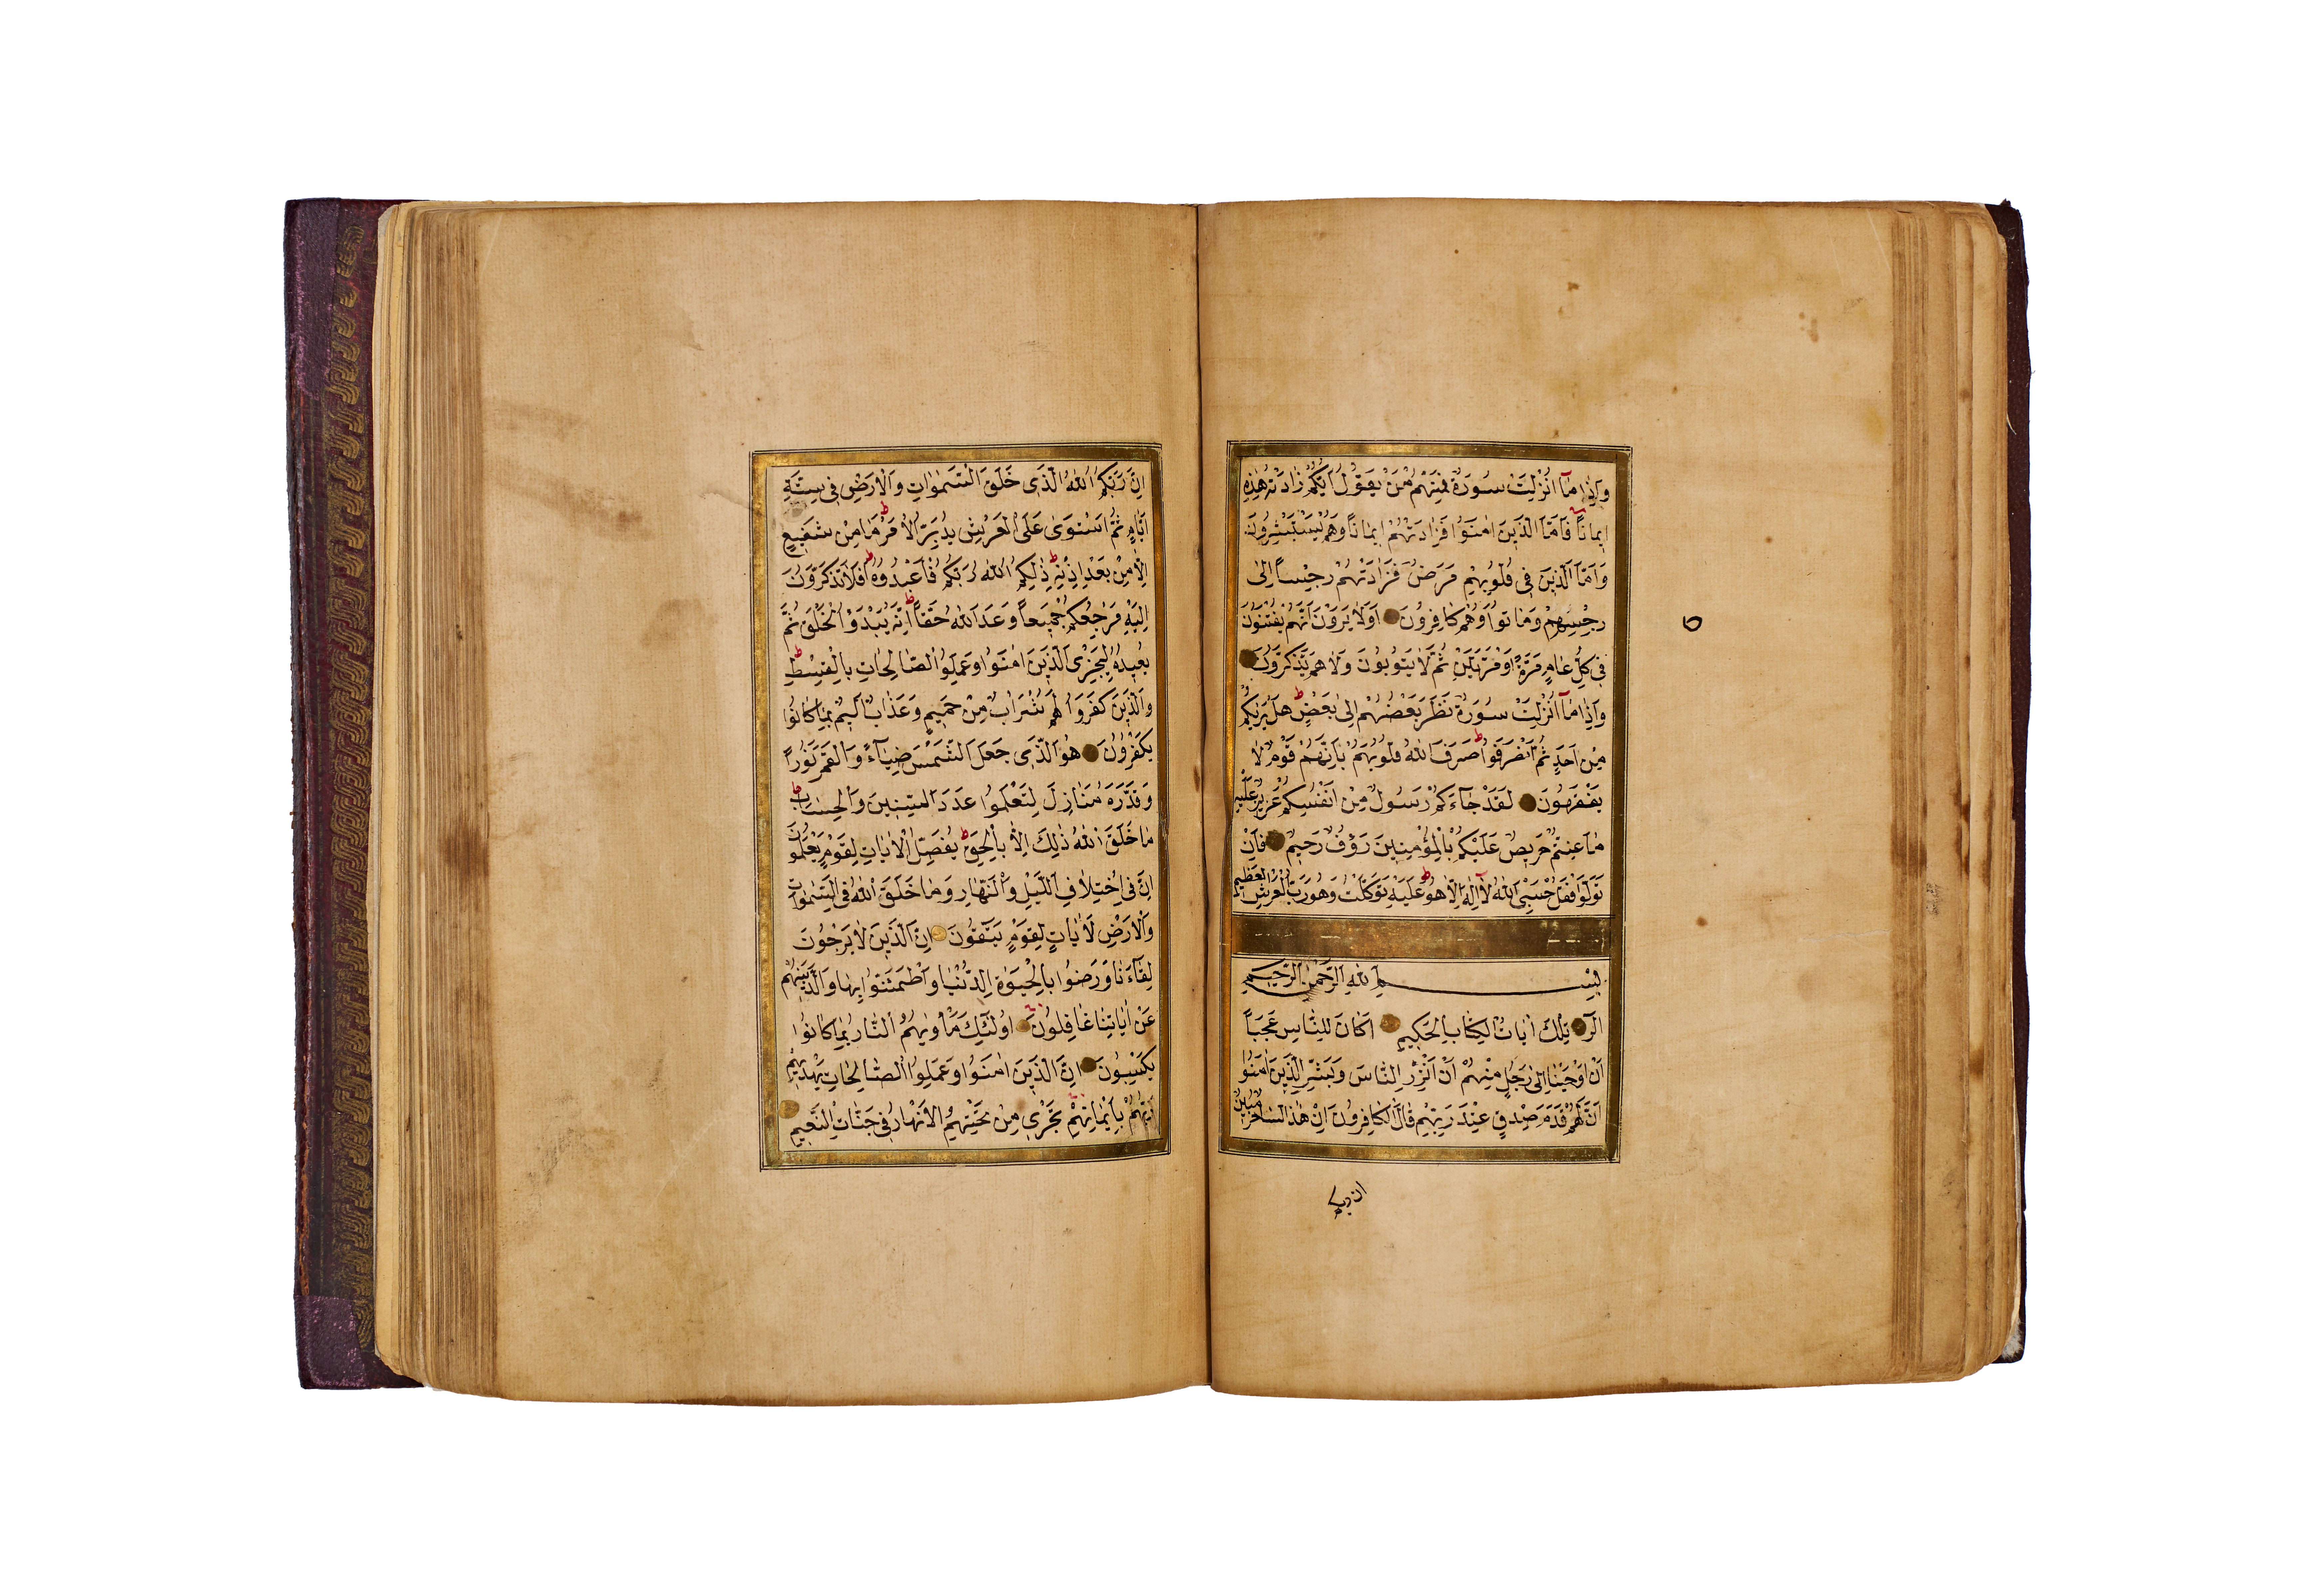 وَاِذَا مَٓا اُنْزِلَتْ سُورَةٌ فَمِنْهُمْ مَنْ يَقُولُ اَيُّكُمْ زَادَتْهُ هٰذِهِ
اِيمَاناً فَاَمَّا الَّذِينَ اٰمَنُوا فَزَادَتْهُمْ اِيمَاناً وَهُمْ يَسْتَبْشِرُونَ
وَاَمَّا الَّذِينَ فِى قُلُوبِهِمْ مَرَضٌ فَزَادَتْهُمْ رِجْساً اِلٰى
رِجْسِهِمْ وَمَاتُوا وَهُمْ كَافِرُونَ اَوَلَا يَرَوْنَ اَنَّهُمْ يُفْتَنُونَ
فِى كُلِّ عَامٍ مَرَّةً اَوْ مَرَّتَيْنِ ثُمَّ لَا يَتُوبُونَ وَلَا هُمْ يَذَّكَّرُونَ
وَاِذَا مَٓا اُنْزِلَتْ سُورَةٌ نَظَرَ بَعْضُهُمْ اِلٰى بَعْضٍ هَلْ يَرٰيكُمْ
مِنْ اَحَدٍ ثُمَّ انْصَرَفُوا صَرَفَ اللّٰهُ قُلُوبَهُمْ بِاَنَّهُمْ قَوْمٌ لَا
يَفْقَهُونَ لَقَدْ جَٓاءَكُمْ رَسُولٌ مِنْ اَنْفُسِكُمْ عَزِيزٌ عَلَيْهِ
مَا عَنِتُّمْ حَرِيصٌ عَلَيْكُمْ بِالْمُؤْمِنِينَ رَؤُفٌ رَحِيمٌ فَاِنْ
تَوَلَّوْا فَقُلْ حَسْبِىَ اللّٰهُ لَٓا اِلٰهَ اِلَّا هُوَ عَلَيْهِ تَوَكَّلْتُ وَهُوَ رَبُّ الْعَرْشِ الْعَظِيمِ
بِسْمِ اللّٰهِ الرَّحْمٰنِ الرَّحِيمِ
الٓرٰ تِلْكَ اٰيَاتُ الْكِتَابِ الْحَكِيمِ اَكَانَ لِلنَّاسِ عَجَباً
اَنْ اَوْحَيْنَا اِلٰى رَجُلٍ مِنْهُمْ اَنْ اَنْذِرِ النَّاسَ وَبَشِّرِ الَّذِينَ اٰمَنُوا
اَنَّ لَهُمْ قَدَمَ صِدْقٍ عِنْدَ رَبِّهِمْ قَالَ الْكَافِرُونَ اِنَّ هٰذَا لَسَاحِرٌ مُبِينٌ
ان ربكم
اِنَّ رَبَّكُمُ اللّٰهُ الَّذِى خَلَقَ السَّمٰوَاتِ وَالْاَرْضَ فِى سِتَّةِ
اَيَّامٍ ثُمَّ اسْتَوٰى عَلَى الْعَرْشِ يُدَبِّرُ الْاَمْرَ مَا مِنْ شَفِيعٍ
اِلَّا مِنْ بَعْدِ اِذْنِهِ ذٰلِكُمُ اللّٰهُ رَبُّكُمْ فَاعْبُدُوهُ اَفَلَا تَذَكَّرُونَ
اِلَيْهِ مَرْجِعُكُمْ جَمِيعاً وَعْدَ اللّٰهِ حَقّاً اِنَّهُ يَبْدَؤُا الْخَلْقَ ثُمَّ
يُعِيدُهُ لِيَجْزِىَ الَّذِينَ اٰمَنُوا وَعَمِلُوا الصَّالِحَاتِ بِالْقِسْطِ
وَالَّذِينَ كَفَرُوا لَهُمْ شَرَابٌ مِنْ حَمِيمٍ وَعَذَابٌ اَلِيمٌ بِمَا كَانُوا
يَكْفُرُونَ هُوَ الَّذِى جَعَلَ الشَّمْسَ ضِيَٓاءً وَالْقَمَرَ نُوراً
وَقَدَّرَهُ مَنَازِلَ لِتَعْلَمُوا عَدَدَ السِّنِينَ وَالْحِسَابَ
مَا خَلَقَ اللّٰهُ ذٰلِكَ اِلَّا بِالْحَقِّ يُفَصِّلُ الْاٰيَاتِ لِقَوْمٍ يَعْلَمُونَ
اِنَّ فِى اخْتِلَافِ الَّيْلِ وَالنَّهَارِ وَمَا خَلَقَ اللّٰهُ فِى السَّمٰوَاتِ
وَالْاَرْضِ لَاٰيَاتٍ لِقَوْمٍ يَتَّقُونَ اِنَّ الَّذِينَ لَا يَرْجُونَ
لِقَٓاءَنَا وَرَضُوا بِالْحَيٰوةِ الدُّنْيَا وَاطْمَئَنُّوا بِهَا وَالَّذِينَ هُمْ
عَنْ اٰيَاتِنَا غَافِلُونَ اُولٰٓئِكَ مَأْوٰيهُمُ النَّارُ بِمَا كَانُوا
يَكْسِبُونَ اِنَّ الَّذِينَ اٰمَنُوا وَعَمِلُوا الصَّالِحَاتِ يَهْدِيهِمْ
رَبُّهُمْ بِاِيمَانِهِمْ تَجْرِى مِنْ تَحْتِهِمُ الْاَنْهَارُ فِى جَنَّاتِ النَّعِيمِ